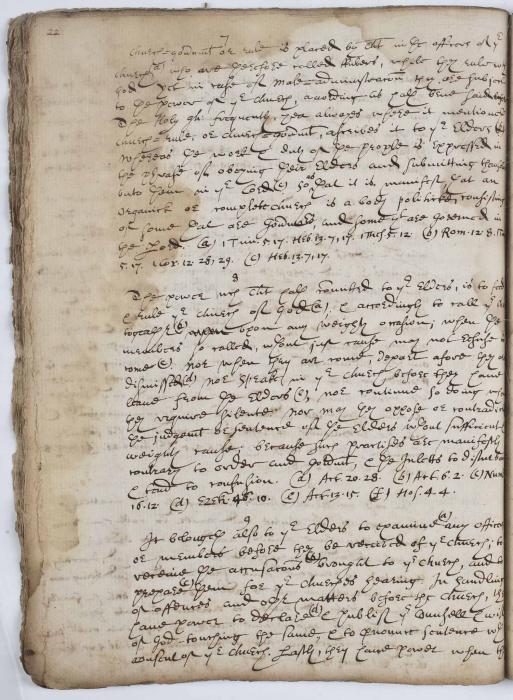 22
7
Church-gouernmt or rule is placed by Christ in ye officers of ye
church(a) who are therfore called Rulers, while they rule wth
God yet in case of male-administration, they are subject
to the power of ye church, according as hath bene said
The Holy Gh: frequently, yea alwayes where it mentioneth
church-rule, or church-gouernmt, ascribes it to ye Elders
Wheras the work & duty of the people is expressed in
the phrase of obeying their Elders and submitting
unto them in ye Lord(c) so as yt it is manifest that an
organick or compleate church is a body politick, consisting
of some that are gouernors, and some yt are gouerned in
the Lord. (a) 1 Tim. 5. 17. Heb. 13. 7, 17. 1 Thes. 5. 12. (b) Rom. 12. 8.
5. 17. 1 Cor. 12. 28, 29. (c) Heb. 13. 7, 17.
8
The power wch Christ hath comitted to ye Elders, is to feed
& rule ye church of God(a), & accordingly to call ye
together(b) upon any weighty occasion; when the
members so called, wthout just cause may not refuse to
come(c): nor when they are come, depart afore they are
dismissed(d) nor speake in ye church before they haue
leaue from the Elders(e), nor continue so doing when
they require silence nor may they oppose or contradict
the judgmt or sentence of the Elders wthout sufficient
weighty cause, because such practises are manifestly
contrary to order and gouernmt, & the Inletts to disturbance
& tend to confusion. (a) Act. 20. 28. (b) Act. 6. 2. (c) Num
16. 12 (d) Ezek. 46. 10. (e) Act. 13. 15. (f) Hos. 4. 4.
9
It belongeth also to ye Elders to examine(a) any officers
or members before they be receiued of ye church, to
receiue the accusations(b) brought to ye church, and to
prepare them for ye churches hearing In handling
of offences and other matters before the church, they
haue power to declare(d) & publish ye Counsell & will
of God touching the same, & to pronounce sentence wth
consent of ye church. Lastly, they haue power when they